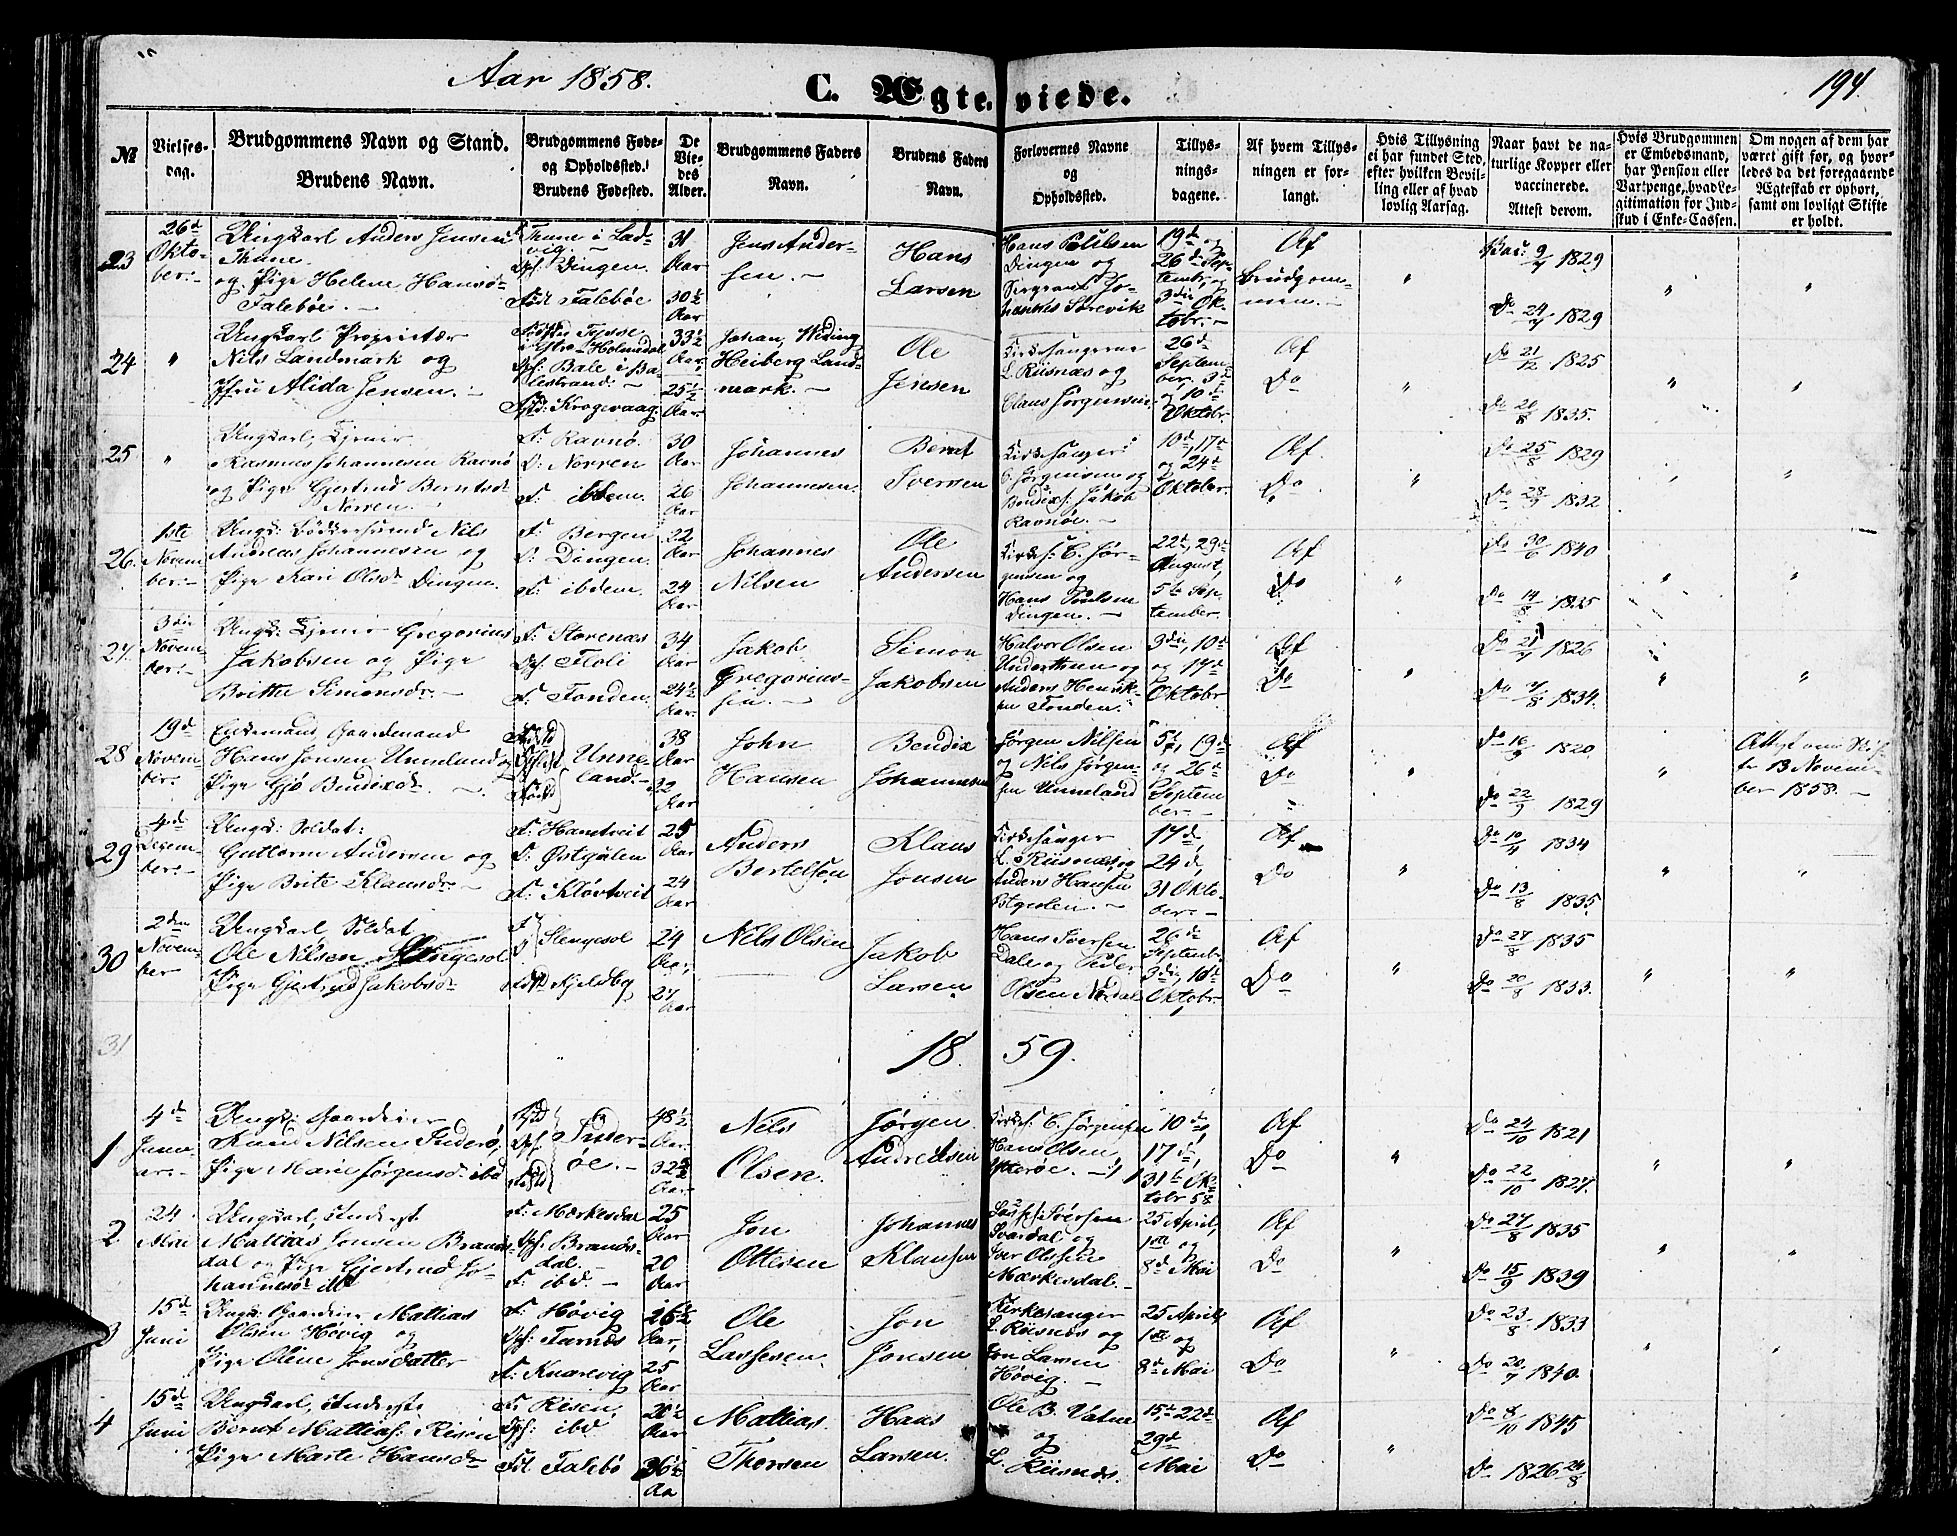 Aar 1858.
C. Ægteviede.
194.
№
Vielsesdag.
Brudgommens Navn og Stand.
Brudens Navn.
Brudgommens Føde-
og Opholdssted.
Brudens Fødested.
De
Vie-
des
Alder.
Brudgommens Faders
Navn.
Brudens Faders
Navn.
Forlovernes Navne
og
Opholdssted.
Tillys-
nings-
dagene.
Af hvem Tillys-
ningen er for-
langt.
Hvis Tillysning
ei har fundet Sted,
efter hvilken Bevil-
ling eller af hvad
lovlig Aarsag.
Naar havt de na-
turlige Kopper eller
vaccinerede.
Attest derom.
Hvis Brudgommen
er Embedsmand,
har Pension eller
Vartpenge, hvad Le-
gitimation for Ind-
skud i Enke-Cassen.
Om nogen af dem har
været gift før, og hvor-
ledes da det foregaaende
Ægteskab er ophørt,
samt om lovligt Skifte
er holdt.
23
26de Oktober.
Ungkarl Anders Jensen
Thune
og Pige Helene Hansd.
Falebøe.
Thune i Lad-
vig.
Oph. Dingen.
Fst. Falebøe
31 Aar
30½ Aar
Jens Ander-
sen.
Hans
Larsen
Hans Poulsen
Dingen og
Sergeant Jo-
hannes Sørevik
19de og
26de Sep-
tembr. og
3die Ok-
tobr.
Af
Brudgom-
men.
" 
Vac: 9/7 1829
Do 24/7 1829
"
"
24
"
Ungkarl Proprietær
Nils Landmark og
Jfru Alida Jensen.
Fysse
Ystre Holmedal
Oph: Bale i Ba-
lestrand.
Fst: Krogevaag
33½ Aar
25½ Aar
Johan Weding
Heiberg Land-
mark.
Ole
Jensen
Kirkesangerne
L. Riisnæs og
Claus Jørgensen.
26de
Septem-
ber, 3de
og 10de
Oktobr.
Af
Do
"
Do 21/12 1825
Do 20/8 1835.
"
"
25
"
Ungkarl, Tjener
Rasmus Johannesen Ravnø
og Pige Gjertrud Berntsd.
Norren.
F: Ravnø.
O: Norren
F: ibdem.
30 Aar
26 Aar
Johannes
Johannesen.
Bernt
Iversen
Kirkesanger
C. Jørgensen og
Jakob
Ravnøe.
10de, 17de
og 24de
Oktober.
Af
Do
"
Do 25/8 1829
Do 28/9 1832
"
"
26.
1ste November.
Ungk: Bødkersvend Nils
Andreas Johannesen og
Pige Kari Olsd. Dingen.
F: Bergen
O: Dingen.
F: ibdem.
22 Aar
24 Aar
Johannes
Nilsen
Ole
Andersen
Kirkes: C. Jør-
gensen og
Hans Poulsen
Dingen.
22de, 29de
August,
5te Sep-
tember.
Af
Do
"
Do 30/6 1840
Do 14/8 1835
"
"
27.
3die November.
Ungk: Tjener Gregorius
Jakobsen og Pige
Britha Simonsdr.
F: Storenæs
Oph: Floli
F: Tonden.
34 Aar
24½ Aar.
Jakob
Gregorius-
sen.
Simon
Jakobsen
Halvor Olsen
og
Anders Henrik-
sen Tonden.
3die, 10de
og 17de
Oktobr.
Af
Do
"
Do 21/7 1826
Do 7/8 1834.
"
"
28
19de November.
Enkemand, Gaardmand
Hans Jonsen Unneland og
Pige Gjø Bendixsd.
Unne-
land.
38 Aar
32 Aar.
John
Hansen
Bendix
Johannesen
Jørgen Nilsen
og Nils Jørgen-
sen Unneland
5te, 19de
og 26de
Septem-
ber.
Af
Do
"
Do 16/9 1820.
Do 22/9 1829
"
Attest om Skif-
te 13 Novem-
ber 1858.
29
4de Decem-
ber.
Ungk: Soldat:
Guttorm Andersen og
Pige Brite Klausdr.
F: Hantveit
O: Østgulen
F: Kløvtveit
25 Aar
24 Aar
Anders
Bertelsen
Klaus
Jonsen
Kirkesanger
L. Riisnæs og
Anders Hansen
Østgulen.
17de,
24de,
31 Okto-
ber.
Af
Do
"
Do 10/4 1834
Do 13/8 1835.
"
"
30
2den Novem-
ber
Ungkarl Soldat
Ole Nilsen Slengesol
Pige Gjertrud Jakobsd.
F
O
Slengesol
Kjeldby
24 Aar,
27 Aar
Nils Olsen
Jakob
Larsen
Hans Iversen
Dale og Peder
Olsen Nordal
26de
Septembr.
3die, 10de
Oktobr.
Af
Do
"
Do 27/8 1835
Do 20/8 1833.
"
"
31
1859.
1
4de Janu-
ar.
Ungk: Gaardeier
Knud Nilsen Inderø,
Pige Marie Jørgensd. ibd
Inder-
øe.
48½ Aar.
32¾ Aar.
Nils
Olsen.
Jørgen
Andreasen
Kirkes: C. Jørgensen
Hans Olsen
Ytterøe.
10de,
17de,
31te Ok-
tobr 58.
Af
Do
"
Do 24/10 1821
Do 22/10 1827.
"
"
2
24 Mai
Ungkarl, Inderst
Mattias Jonsen Brands-
dal og Pige Gjertrud Jo-
hannesd.
F: Mærkesdal
Oph: Brands-
dal.
F: ibd.
25 Aar
20 Aar
Jon
Ottesen
Johannes
Klausen
Svardal og
Iver Olssen
Mærkesdal.
25 April,
1ste og
8de Mai
Af
Do
"
Do 27/8 1835
Do 15/9 1839
"
"
3
15de Juni
Ungk: Gaardeier Mattias
Olsen Høvig og
Pige Oline Jonsdatter
F: Høvig
Oph: Farnæs
F: Knarevig
26½ Aar,
25 Aar
Ole
Lassesen.
Jon
Jonsen
Kirkesanger
L. Riisnæs og
Jon Larsen
Høvig.
25 April,
1ste og
8de Mai
Af
Do
"
Do 23/8 1833
Do 20/7 1840.
"
"
4
15de Juni
Ungkarl, Inderste
Bernt Mattias: Risen
Pige Marte Hansd.
F: Risen
Oph: ibd
Fst Falebø
20½ Aar
36½ Aa
Mattias
Thorsen
Hans
Larsen.
Ole B. Vatne
og
L. Riisnæs.
15de, 22de
29de
Mai
Af
Do
"
Do 8/10 1845
Do 1826 24/8